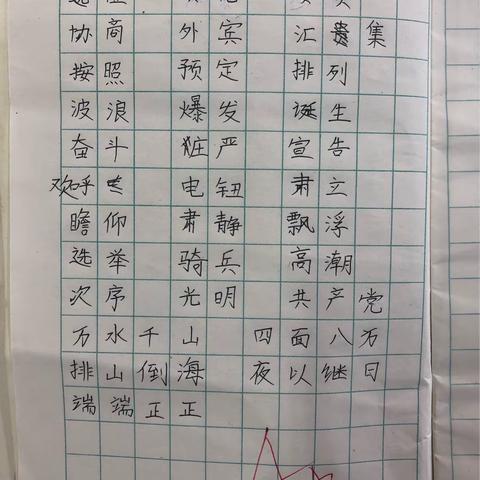 协商 外宾 汇集
按照 预定 排列
波浪 爆发 诞生
奋斗 庄严 宣告
欢呼 电钮 肃立
瞻仰 肃静 飘浮
选举 骑兵 高潮
次序 光明 共产党
万水千山 四面八万
排山倒海 夜以继日
端端正正